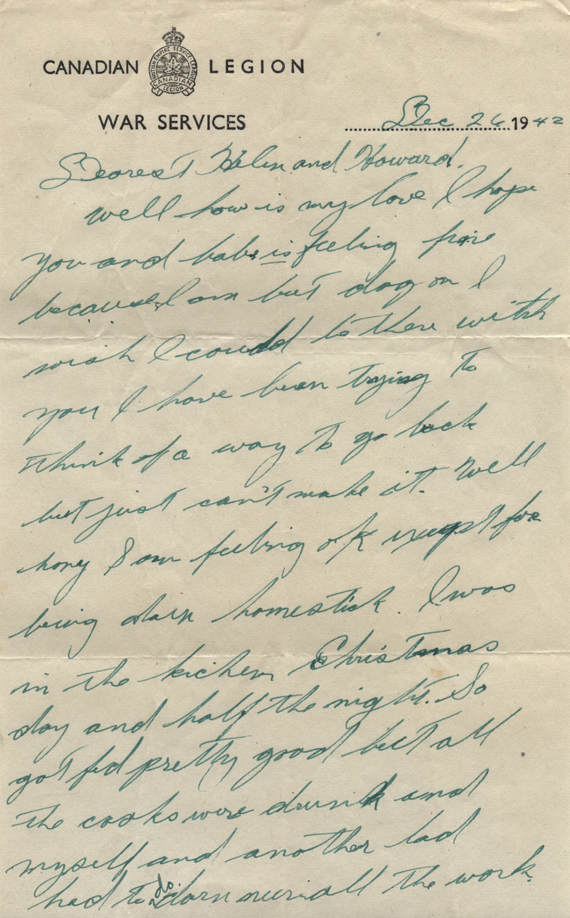 CANADIAN LEGION
WAR SERVICES
Dec 26 1942
Dearest Helen and Howard.
Well how is my love I hope
you and babe is feeling fine
because I am but dog on I
wish I could be there with
you I have been trying to
think of a way to go back
but just can't make it. Well
hony I am feeling ok except for
being darn homesick. I was
in the kichen Christmas
day and half the night. So
got fed pretty good but all
the cooks were drunk and
myself and another lad
had to do darn near all the work.